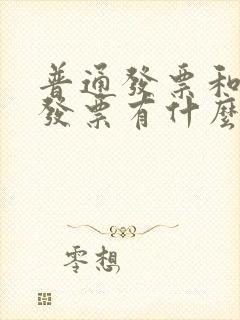 普通發票和
發票有什麼
零想